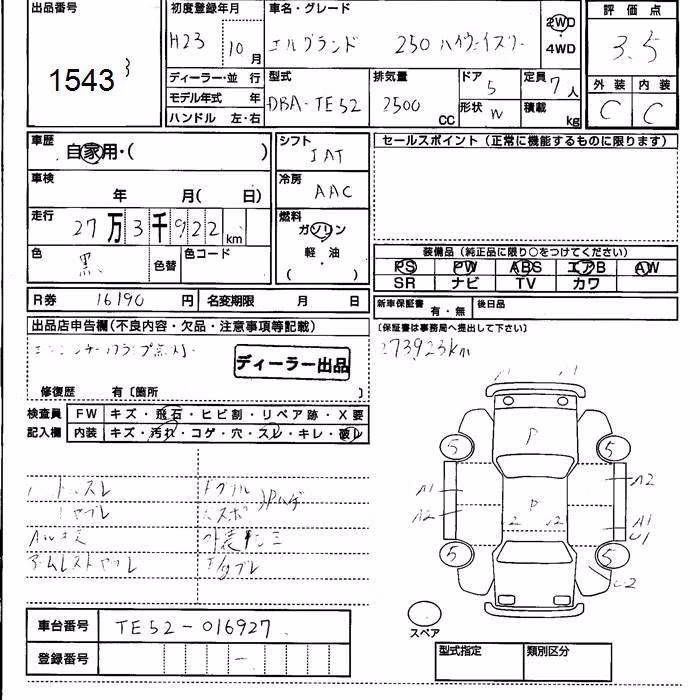 出品番号
1543
3
初度登録年月
H23 10月
車名・グレード
エルグランド 250 ハイウェイスター
2WD
・
4WD
評価点
3.5
外装 内装
C C
ディーラー・並行
モデル年式 年
ハンドル 左・右
型式
DBA-TE52
排気量
2500
CC
ドア
5
形状 W
定員
7人
積載
kg
車歴
自家用・( )
車検
年 月( 日)
走行
27万3千922km
色
黒
色替
色コード
シフト
IAT
冷房
AAC
燃料
ガソリン
軽・油
( )
セールスポイント (正常に機能するものに限ります)
装備品 (純正品に限り○をつけてください)
PS PW ABS エアB AW
SR ナビ TV カワ
R券 16190 円 名変期限 月 日
新車保証書
有・無
後日品
(保証書は事務局へ提出して下さい)
273923km
出品店申告欄(不良内容・欠品・注意事項等記載)
ディーラー出品
修復歴 有〔箇所 〕
検査員
記入欄
FW キズ・飛石・ヒビ割・リペア跡・X要
内装 キズ・汚れ・コゲ・穴・スレ・キレ・破レ
スレ
ヤブレ
AWキズ
アームレストヤブレ
P
P
5
5
5
5
A1
A2
A2
A1
U1
U2
スペア
車台番号 TE52-016927
登録番号 -
型式指定 類別区分